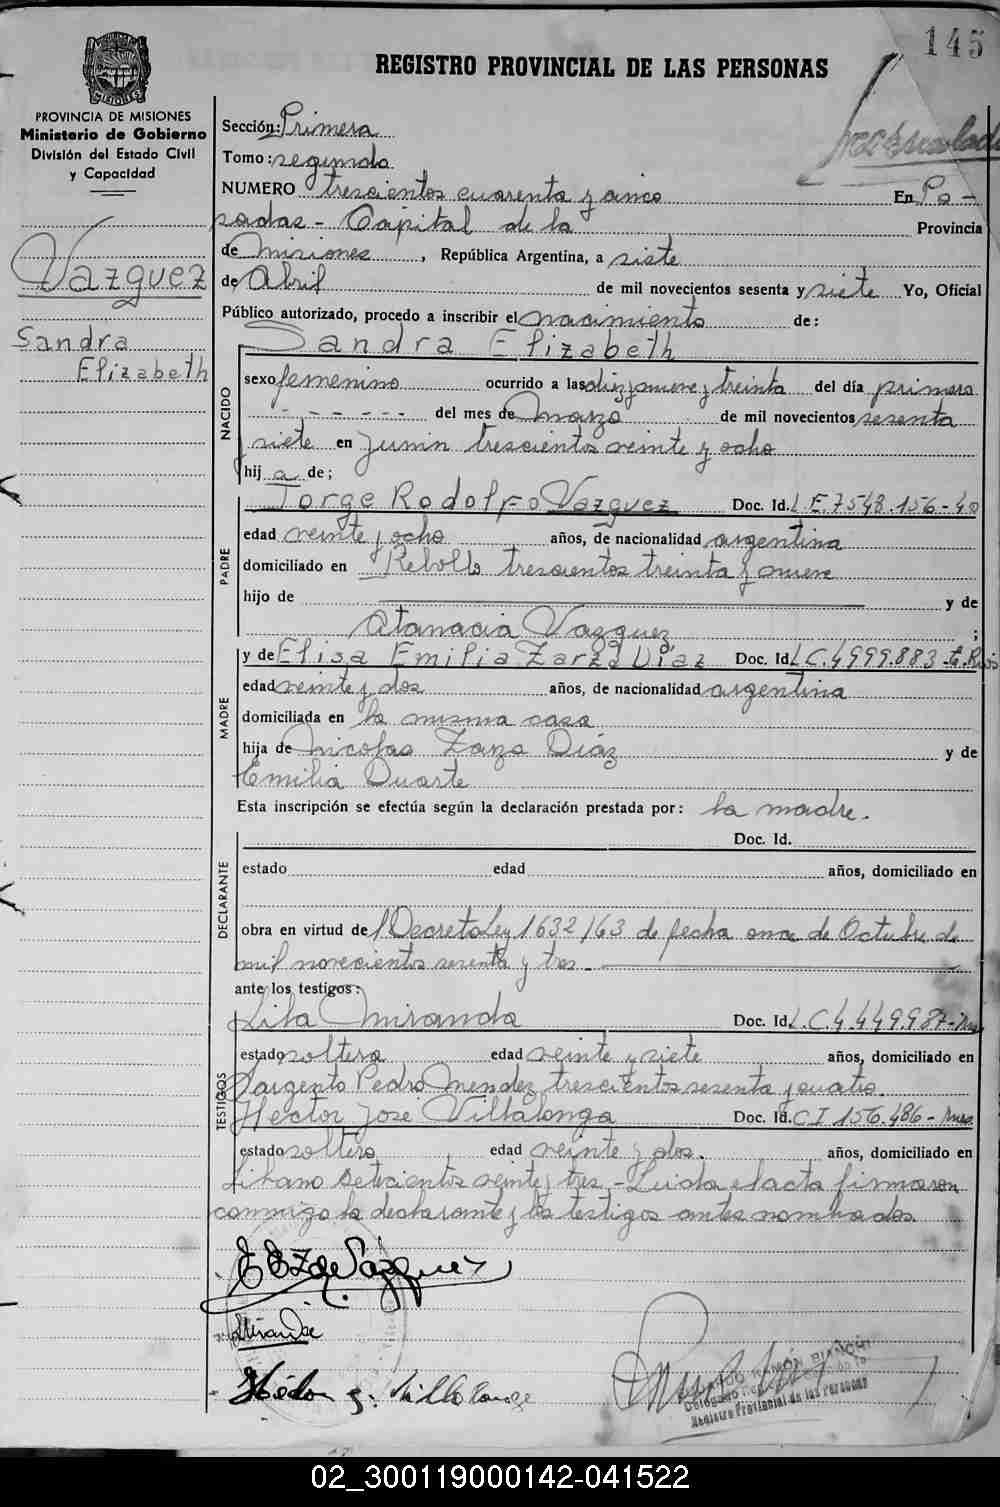 145
REGISTRO PROVINCIAL DE LAS PERSONAS
MISIONES
PROVINCIA DE MISIONES
Ministerio de Gobierno
División del Estado Civil
y Capacidad
Vazquez
Sandra
Elizabeth
Sección: Primera
Tomo: segundo
NUMERO trescientos cuarenta y cinco En Po-
sadas - Capital de la Provincia
de Misiones, República Argentina, a siete
de Abril de mil novecientos sesenta y siete Yo, Oficial
Público autorizado, procedo a inscribir el nacimiento de:
Sandra Elizabeth
NACIDO
sexo femenino ocurrido a las diez nueve y treinta del día primero
- - - - - - del mes de Marzo de mil novecientos sesenta
y siete en Junin trescientos veinte y ocho
hij a de;
PADRE
Jorge Rodolfo Vazquez Doc. Id. L.E. 7548.156-40
edad veinte y ocho años, de nacionalidad argentina
domiciliado en Rebollo trescientos treinta y nueve
hijo de y de
Atanacia Vazquez ;
MADRE
y de Elisa Emilia Zarza Diaz Doc. Id. L.C. 4999.883-E. Rios
edad veinte y dos años, de nacionalidad argentina
domiciliada en la misma casa
hija de Nicolas Zarza Diáz y de
Emilia Duarte
Esta inscripción se efectúa según la declaración prestada por: la madre.
Doc. Id.
DECLARANTE
estado edad años, domiciliado en
obra en virtud de l Decreto Ley 1632/63 de fecha once de Octubre de
mil novecientos sesenta y tres
ante los testigos:
TESTIGOS
Lila Miranda Doc. Id. L.C. 4.449.987-Mns
estado soltera edad veinte y siete años, domiciliado en
Sargento Pedro Mendez trescientos sesenta y cuatro.
Hector José Villalonga Doc. Id. C I 156.486-Mns.
estado soltero edad veinte y dos. años, domiciliado en
Libano setecientos veinte y tres - Leida el acta firmaron
conmigo la declarante y los testigos antes nombrados.
E E Z de Vázquez
Miranda
Héctor J. Villalonga
RAMÓN BIANCHI
Registro Provincial de las Personas
02_300119000142-041522